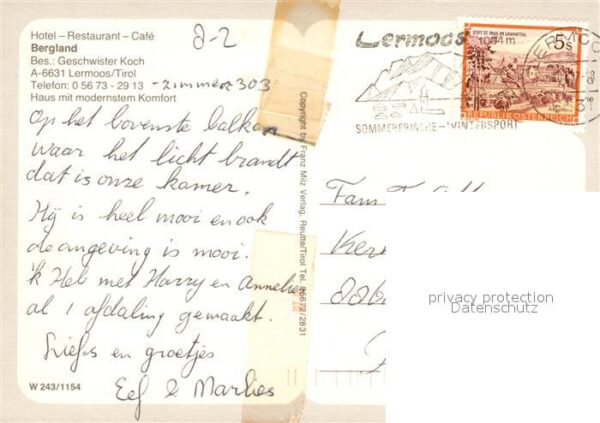 Hotel – Restaurant – Café
Bergland
Bes.: Geschwister Koch
A-6631 Lermoos/Tirol
Telefon: 0 56 73 - 29 13 - zimmer 303
Haus mit modernstem Komfort
8-2
Op het bovenste balkon
waar het licht brandt
dat is onze kamer.
Hij is heel mooi en ook
de omgeving is mooi.
ik Heb met Harry en Annelies
al 1 afdaling gemaakt.
Liefs en groetjes
Eef & Marlies
W 243/1154
Copyright by Franz Milz Verlag, Reutte/Tirol Tel. 05672/2831
Lermoos
1004 m
SOMMERFRISCHE - WINTERSPORT
STIFT ST. PAUL IM LAVANTTAL
5s
REPUBLIK ÖSTERREICH
LERMOOS
Fam
Ker
privacy protection
Datenschutz